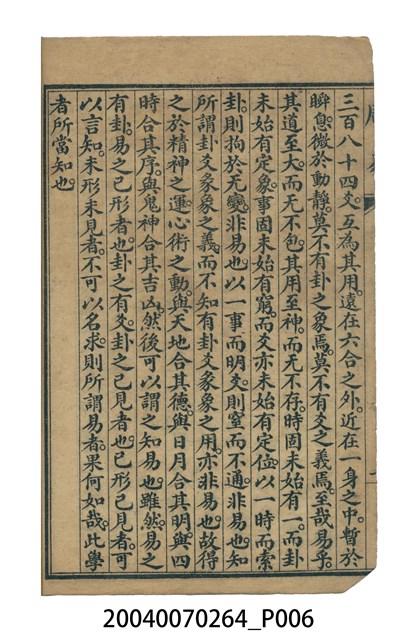 三百八十四爻。互為其用。遠在六合之外。近在一身之中。暫於
瞬息。微於動靜。莫不有卦之象焉。莫不有爻之義焉。至哉易乎。
其道至大。而无不包。其用至神。而无不存。時固未始有一。而卦
未始有定象。事固未始有窮。而爻亦未始有定位。以一時而索
卦。則拘於无變。非易也。以一事而明爻。則窒而不通。非易也。知
所謂卦爻彖象之義。而不知有卦爻彖象之用。亦非易也。故得
之於精神之運。心術之動。與天地合其德。與日月合其明。與四
時合其序。與鬼神合其吉凶。然後可以謂之知易也。雖然。易之
有卦。易之已形者也。卦之有爻。卦之已見者也。已形已見者。可
以言知。未形未見者。不可以名求。則所謂易者果何如哉。此學
者所當知也。
20040070264_P006